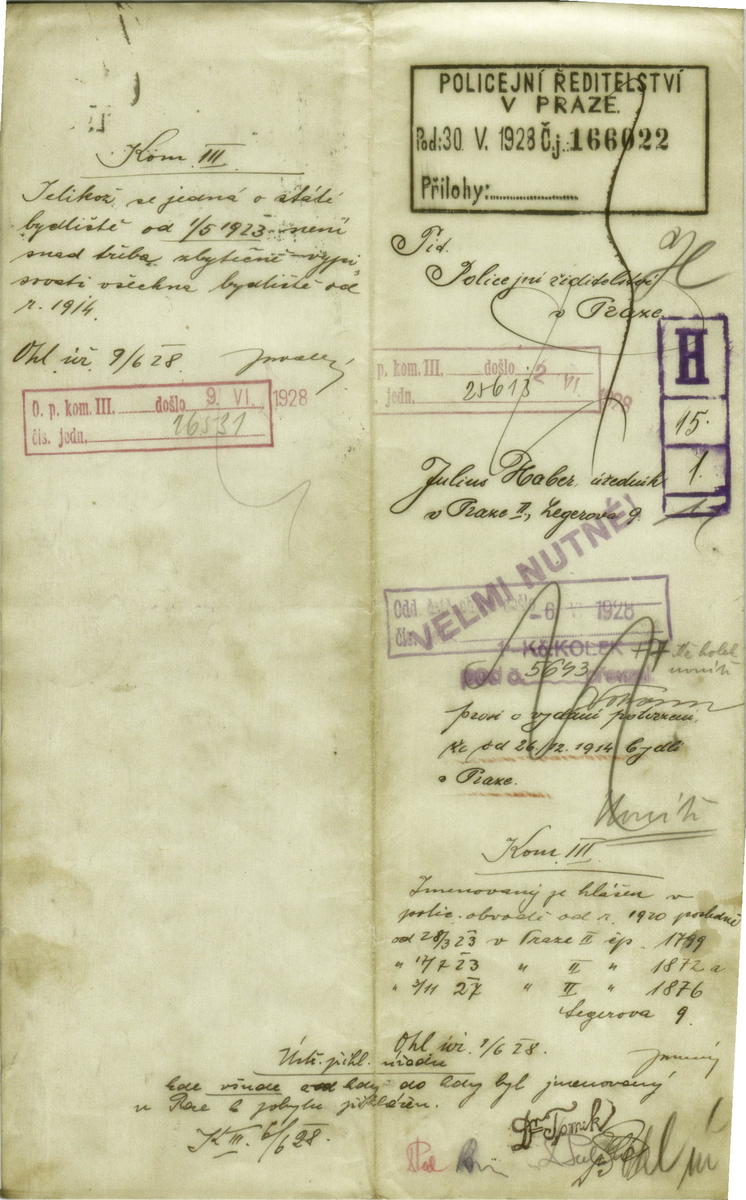 Kom. III
Jelikož se jedná o stálé
bydliště od 1/5 1923 není
snad třeba zbytečně vypi
sovati všechna bydliště od
r. 1914.
Ohl. úř. 9/6 28.
O. p. kom. III. došlo 9. VI. 1928
čís. jedn. 26531
POLICEJNÍ ŘEDITELSTVÍ
V PRAZE.
Pod: 30. V. 1928 Č.j.: 166022
Přílohy:
Policejní ředitelství
v Praze.
H
15.
1.
p. kom. III. došlo 2 VI.
jedn. 25613
Julius Haber, úředník
v Praze II, Legerova 9.
VELMI NUTNÉ!
Odd. 6 VI 1928
čís.
Kč KOLEK
5693
prosí o vydání potvrzení
že od 26./12. 1914 bydlí
v Praze.
Kom. III.
Jmenovaný je hlášen v
polic. obvodě od r. 1920 posledně
od 28/3 23 v Praze II čp. 1799
" 17/7 23 " II " 1872 a
" 3/11 27 " II " 1876
Legerova 9.
Ohl. úř. 1/6 28.
Ústř. přihl. úřadu
kde všude a od kdy do kdy byl jmenovaný
v Praze k pobytu přihlášen.
K III. 6/6 28.
Dr. Tomek